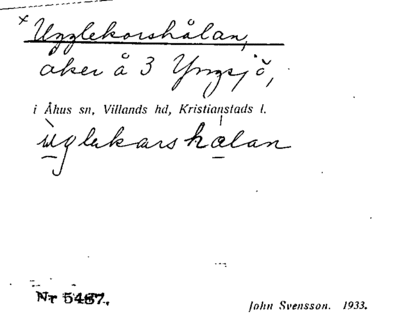 x Ugglekorshålan,
åker å 3 Yngsjö,
i Åhus sn, Villands hd, Kristianstads l.
ùglekarshålan
Nr 5487.
John Svensson. 1933.